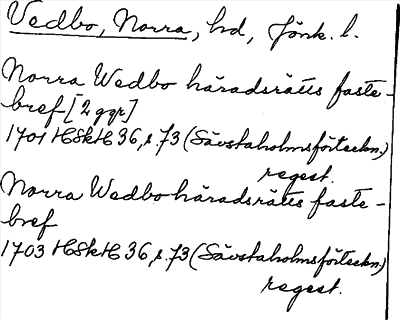 Vedbo, Norra, hd, Jönk. l.
Norra Wedbo häradsrätts faste-
bref [2 ggr]
1701 HSkH 36, s. 73 (Sävstaholmsförteckn.)
regest.
Norra Wedbo häradsrätts faste-
bref
1703 HSkH 36, s. 73 (Sävstaholmsförteckn.)
regest.